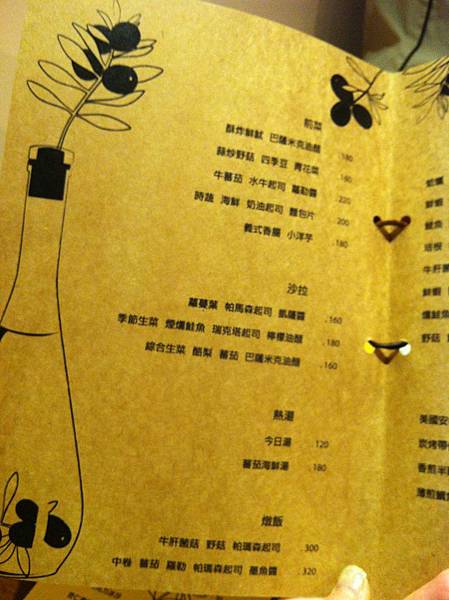 前菜
酥炸鮮魷 巴薩米克油醋 .180
蒜炒野菇 四季豆 青花菜 .160
牛蕃茄 水牛起司 蘿勒醬 .220
時蔬 海鮮 奶油起司 麵包片 .200
義式香腸 小洋芋 .180
沙拉
蘿蔓葉 帕馬森起司 凱薩醬 .160
季節生菜 煙燻鮭魚 瑞克塔起司 檸檬油醋 .180
綜合生菜 酪梨 蕃茄 巴薩米克油醋 .160
熱湯
今日湯 .120
蕃茄海鮮湯 .180
燉飯
牛肝菌菇 野菇 帕瑪森起司 .300
中卷 蕃茄 羅勒 帕瑪森起司 墨魚醬 .320
鮮蝦
牛肝菌
鮮蝦
燻鮭魚
野菇
美國安
炭烤帶
香煎半
薄煎鯛魚